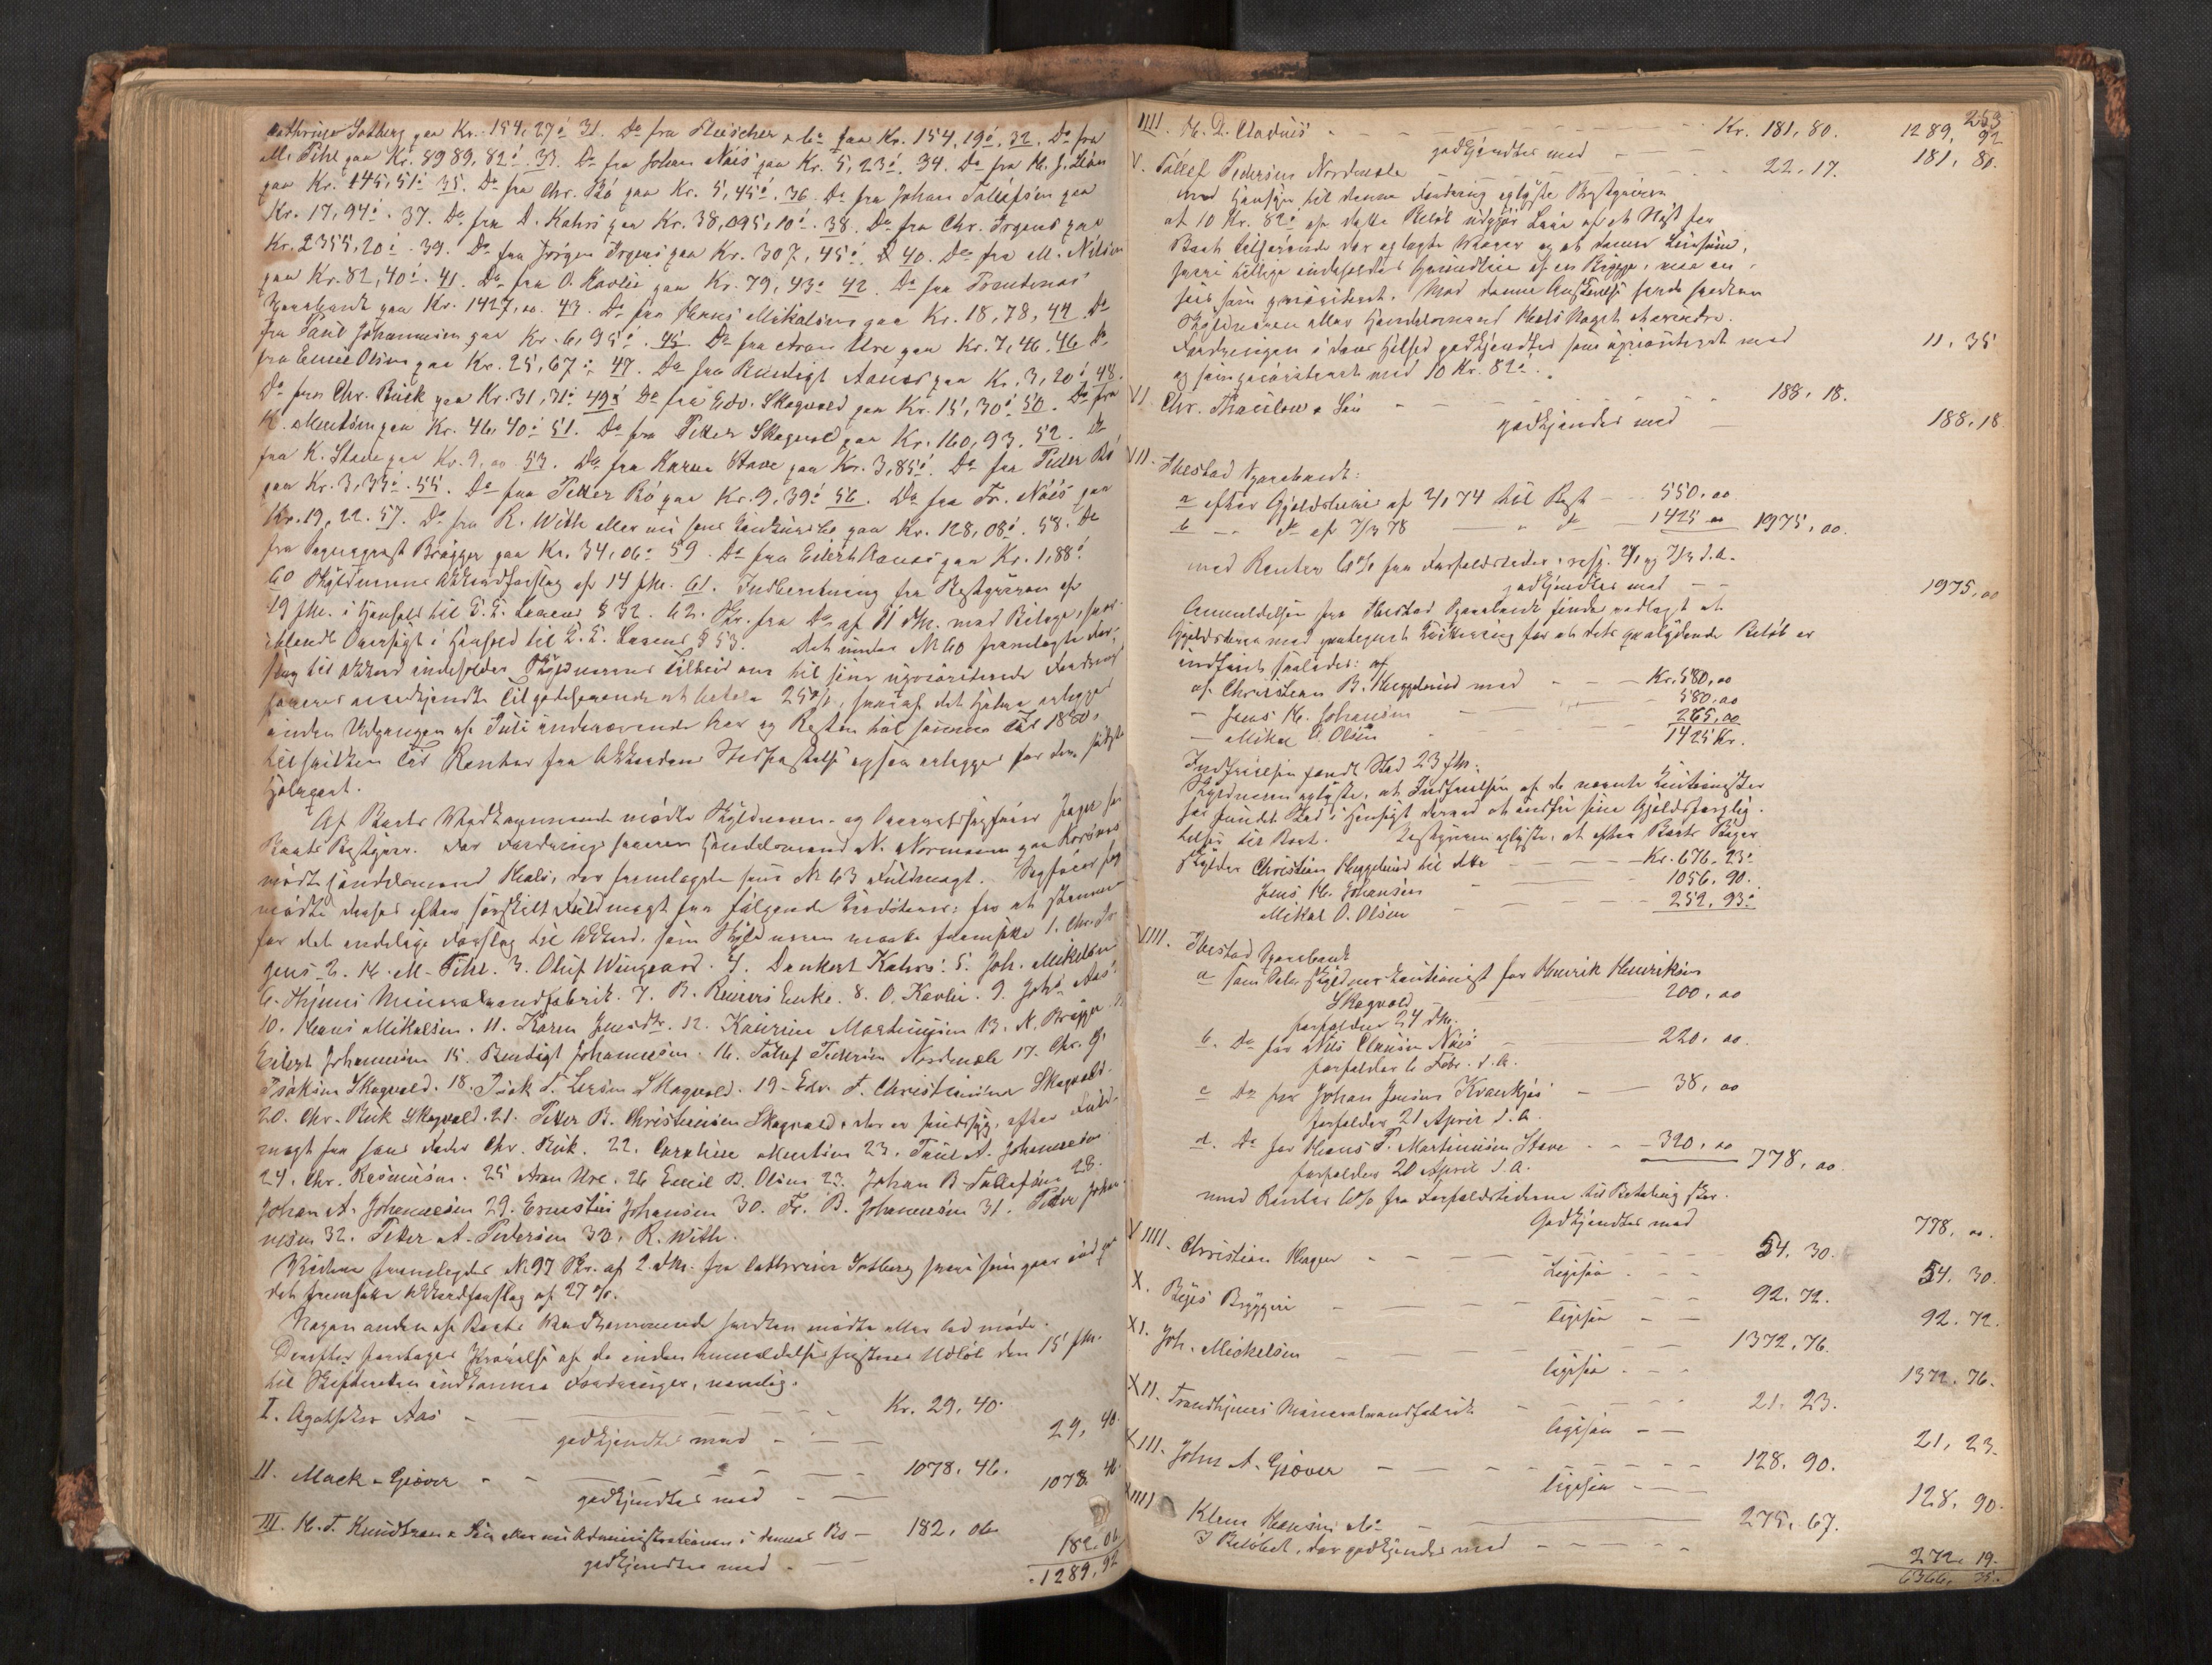 Cathrine Sotberg paa Kr. 154,27ö 31. Do fra Fleischer & Co paa Kr. 154,19ö, 32. Do fra
M. Pihl paa Kr. 8989,82ö. 33. Do fra Johan Nöis paa Kr. 5,23ö. 34. Do fra
paa Kr. 145,51ö 35. Do fra Chr. Bö paa Kr. 5,45ö. 36. Do fra Johan Tollefsen paa
Kr. 17,94ö. 37. Do fra D. Kahrs paa Kr. 38,095,10ö. 38. Do fra Chr. Irgens paa
Kr. 2355,20ö. 39. Do fra Jörgen Irgens paa Kr. 307,45ö. 40. Do fra M. Nilsen
paa Kr. 82,40ö. 41. Do fra O. Kavlie paa Kr. 79,43ö 42. Do fra Trondenæs
Sparebank paa Kr. 1427,00. 43. Do fra Hans Mikalsen paa Kr. 18,78, 44. Do
fra Paul Johannesen paa Kr. 6,95ö. 45. Do fra Aron Ure paa Kr. 7,46. 46 Do
fra Emil Olsen paa Kr. 25,67ö, 47. Do fra Bendigt Aanæs paa Kr. 3,20ö 48.
Do fra Chr. Buck paa Kr. 31,31ö 49. Do fra Edv. Skogvold paa Kr. 15,30ö 50. Do fra
K. Mentsen paa Kr. 46,40ö 51. Do fra Petter Skogvold paa Kr. 160,93. 52. Do
fra K. Stave paa Kr. 9,00 53. Do fra Karen Stave paa Kr. 3,85ö. Do fra Peder Bö
paa Kr. 3,33ö. 55. Do fra Petter Bö paa Kr. 9,39ö 56. Do fra Fr. Nöis paa
Kr. 19,22. 57. Do fra R. With eller nu hans Konkursbo paa Kr. 128,08ö. 58. Do
fra Sogneprest Brögger paa Kr. 34,06ö 59. Do fra Eilert Aanæs paa Kr. 1,88ö.
60 Skyldnerens Akkordforslag af 14 ds. 61. Indberetning fra Bestyreren af
19 ds. i Henhold til S. L. Lovens § 32. 62. Skr. fra Do af 21 ds. med Bilage,
Oversigt i Henhold til S. L. Lovens § 53. Det under No 60 fremlagte For-
slag til Akkord indeholder Skyldnerens Tilbud om til sine uprioriterede Fordrings-
havere anerkjendte Tilgodehavende at betale 25%, hvoraf det halve erlægges
inden Udgangen af Juli indeværende Aar og Resten til samme Tid 1880,
til hvilken Tid Renter fra Akkordens Stadfæstelse ogsaa erlægges for den sidste
Halvpart.
Af Boets Vedkommende mödte Skyldneren og Overretssagförer Jager som
Boets Bestyrer. For Fordringshaveren Handelsmand N. Normann paa Korsnæs
mödte Handelsmand Hals, der fremlagde som No 63 Fuldmagt. Sagförer
mödte derhos efter særskilt Fuldmagt for fölgende Kreditorer: for at stemme
for det endelige Forslag til Akkord, som Skyldneren maatte fremsætte 1. Chr. Ir-
gens 2. H. M. Pihl. 3. Oluf Wingaard. 4. Dankert Kahrs. 5. Joh. Mikelsen
6. Hjems Mineralvandfabrik. 7. B. Reiners Enke. 8. O. Kavlie. 9. Johs Aas
10. Hans Mikalsen. 11. Karen Jensdtr. 12. Kairine Martinusen 13. N. Brögger 14.
Eilert Johannesen 15. Bendigt Johannesen. 16. Tollef Pedersen Nordmele 17. Chr. G.
Isaksen Skogvold. 18. Isak T. Larsen Skogvold. 19. Edv. F. Christiansen Skogvold.
20. Chr. Buk Skogvold. 21. Petter B. Christiansen Skogvold, der er sindssyg, efter Fuld-
magt fra hans Fader Chr. Buk. 22. Caroline Mentsen 23. Paul A. Johannesen
24. Chr. Rasmusen. 25 Aron Ure. 26 Emil B. Olsen 27. Johan B. Tollefsen 28.
Johan A. Johannesen 29. Ernestus Johansen 30. Fr. B. Johannesen 31. Peder Johan-
nesen 32. Petter A. Pedersen 33. R. With.
Videre fremlagdes No 97 Skr. af 2. ds. fra Cathrine Sotberg hvori hun gaar ind paa
det fremsatte Akkordforslag af 27 %.
Nogen anden af Boets Vedkommende hverken mödte eller lod möde.
Derefter foretoges Prövelse af de inden Anmeldelsesfristens Udlöb den 15 ds.
til Skifteretten indkomne Fordringer, nemlig:
I. Agathon Aas - - - Kr. 29,40.
godkjendtes med - - - 29,40.
II. Mack & Giæver - - - 1078,46.
godkjendtes med - - - 1078,46.
III. H. T. Knudtzon & Sön eller nu Administrationen i dennes Bo - 182,06
godkjendtes med - - - 182,06
1289,92
253
1289,92
IIII. H. D. Clodius - - - Kr. 181,80.
godkjendtes med - - - 181,80.
V. Tollef Pedersen Nordmele - - - 22,17.
Med Hensyn til denne Fordring oplyste Bestyreren
at 10 Kr. 82ö af dette Belöb udgjör Leie af et Nöst for
Boets tilhörende Varer og at denne Leiesum,
hvori tillige indeholdes Grundleie af en Brygge, maa an-
sees som prioriteret. Mod denne Anskuelse havde hverken
Skyldneren eller Handelsmand Hals Noget at erindre.
Fordringen i dens Helhed godkjendtes som uprioriteret med 11,35
og som prioriteret med 10 Kr. 82ö.
VI. Chr. Thaulow & Sön - - - 188,18.
godkjendes med 188,18.
VII. Ibestad Sparebank:
a efter Gjeldsbrev af 2/1 74 til Rest - - 550,00
b - Do af 7/3 78 - - Do - 1425,00 1975,00.
med Renter 6% fra Forfaldstider, resp. 2/1 og 7/3 d. A.
godkjendtes med - - 1975,00
Anmeldelsen fra Ibestad Sparebank findes vedlagt et
Gjeldsbrev med paategnet Kvittering for at dets paalydende Belöb er
indfriet saaledes:
af Christian B. Heggelund med - - - Kr. 580,00
- Jens H. Johansen - - - 580,00
- Mikal O. Olsen - - - 265,00
1425 Kr.
Indfrielsen fandt Sted 23 ds.
Skyldneren oplyste, at Indfrielsen af de nævnte Kautionister
har fundet Sted i Hensigt derved at indfri sine Gjeldsforplig-
telser til Boet. Bestyreren oplyste, at efter Boets Böger
skylder Christian Heggelund til dette - - - Kr. 676,23ö
Jens H. Johansen - - - 1056,90.
Mikal O. Olsen - - - 252,93ö
VIII. Ibestad Sparebank
a Som Selvskyldnerkautionist for Henrik Henriksen
Skogvold - - - 200,00
forfalden 24 ds.
b. Do for Nils Clausen Nöis - - - 220,00.
forfalder 6 Febr. d. A.
c Do for Johan Jensen Kvernkjær - - - 38,00
forfalder 21 April d. A.
d. Do for Hans P. Martinusen Stave - - - 320,00 778,00.
forfalder 20 April d. A.
med Renter 6% fra Forfaldstiderne til Betaling sker.
Godkjendtes med 778,00.
VIIII. Christian Hager - - - 54,30.
Ligesaa - - - 54,30.
X. Byes Bryggeri - - - 92,72.
ligesaa - - 92,72.
XI. Joh. Mickelsen - - - 1372,76.
ligesaa - - 1372,76.
XII. Trondhjems Mineralvandfabrik - - - 21,23.
ligesaa - - 21,23.
XIII. John A. Giæver - - - 128,90.
ligesaa - - 128,90.
XIIII. Klem Hansen & Co - - - 275,67.
I Belöbet, der godkjendes med - - - 272,19.
6366,35.